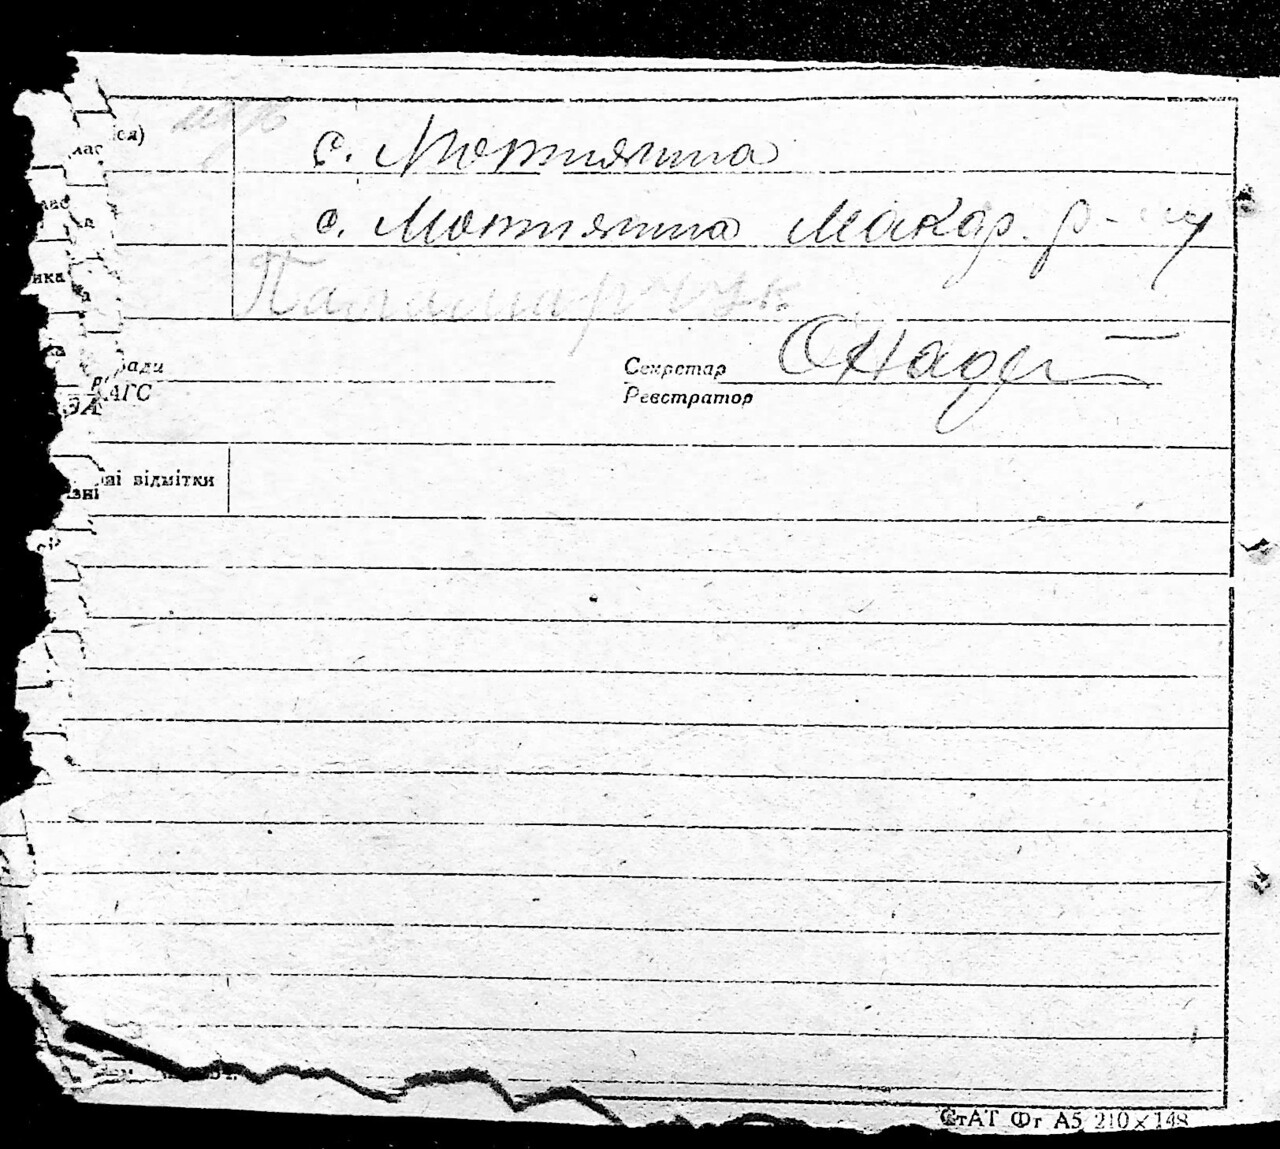 ся)
с. Мотижина
с. Мотижина Макар. р-ну
ика
Паламарчук
ради
Секретар
АГС
Реєстратор
ні відмітки
СтАТ Фг А5 210×148